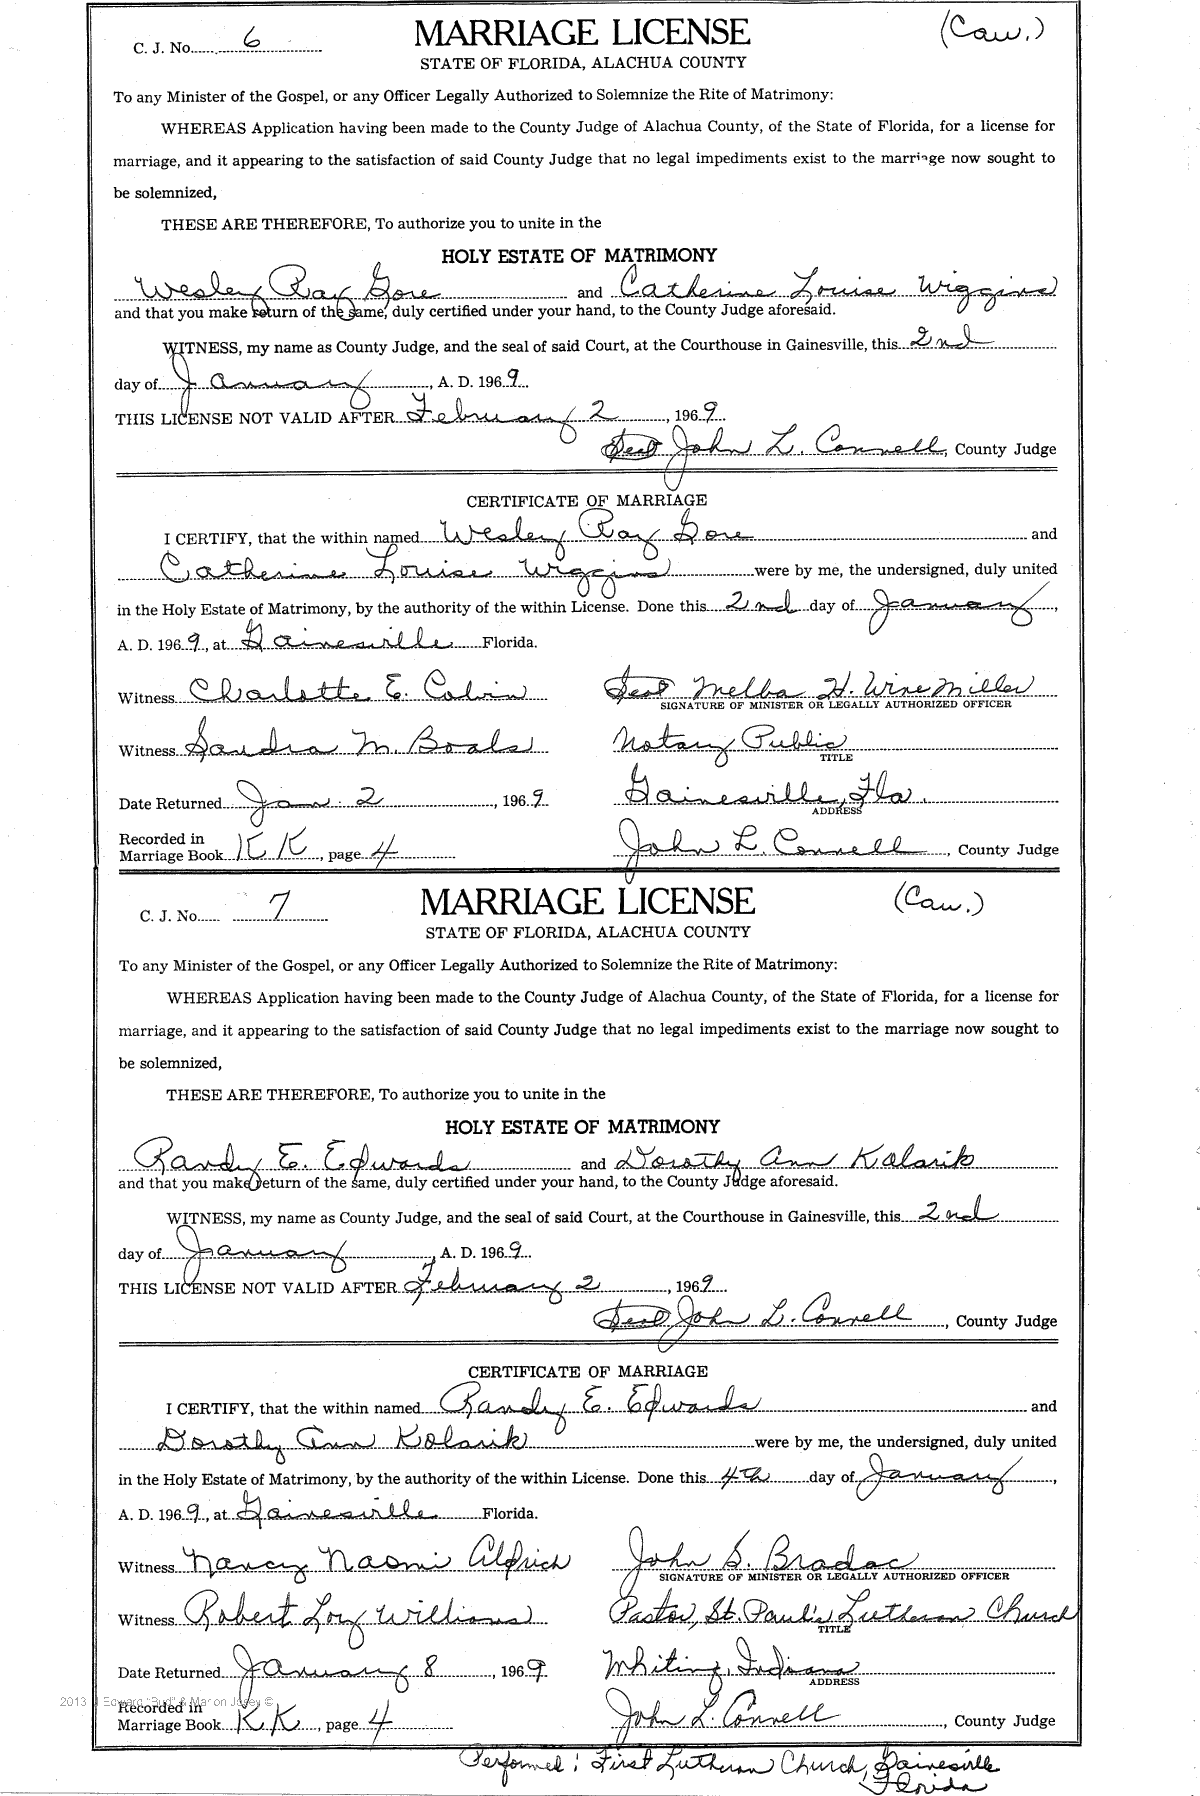 C. J. No. 6
MARRIAGE LICENSE
(Cau.)
STATE OF FLORIDA, ALACHUA COUNTY
To any Minister of the Gospel, or any Officer Legally Authorized to Solemnize the Rite of Matrimony:
WHEREAS Application having been made to the County Judge of Alachua County, of the State of Florida, for a license for
marriage, and it appearing to the satisfaction of said County Judge that no legal impediments exist to the marriage now sought to
be solemnized,
THESE ARE THEREFORE, To authorize you to unite in the
HOLY ESTATE OF MATRIMONY
Wesley Ray Gore and Catherine Louise Wiggins
and that you make return of the same, duly certified under your hand, to the County Judge aforesaid.
WITNESS, my name as County Judge, and the seal of said Court, at the Courthouse in Gainesville, this 2nd
day of January, A. D. 1969
THIS LICENSE NOT VALID AFTER February 2, 1969
Seal John L. Connell, County Judge
CERTIFICATE OF MARRIAGE
I CERTIFY, that the within named Wesley Ray Gore and
Catherine Louise Wiggins were by me, the undersigned, duly united
in the Holy Estate of Matrimony, by the authority of the within License. Done this 2nd day of January,
A. D. 1969, at Gainesville Florida.
Witness Charlotte E. Colvin Seal Melba H. WineMiller
SIGNATURE OF MINISTER OR LEGALLY AUTHORIZED OFFICER
Witness Sandra M. Boals Notary Public
TITLE
Date Returned Jan 2, 1969 Gainesville, Fla.
ADDRESS
Recorded in
Marriage Book KK, page 4 John L. Connell, County Judge
C. J. No. 7
MARRIAGE LICENSE
(Cau.)
STATE OF FLORIDA, ALACHUA COUNTY
To any Minister of the Gospel, or any Officer Legally Authorized to Solemnize the Rite of Matrimony:
WHEREAS Application having been made to the County Judge of Alachua County, of the State of Florida, for a license for
marriage, and it appearing to the satisfaction of said County Judge that no legal impediments exist to the marriage now sought to
be solemnized,
THESE ARE THEREFORE, To authorize you to unite in the
HOLY ESTATE OF MATRIMONY
Randy E. Edwards and Dorothy Ann Kolarik
and that you make return of the same, duly certified under your hand, to the County Judge aforesaid.
WITNESS, my name as County Judge, and the seal of said Court, at the Courthouse in Gainesville, this 2nd
day of January, A. D. 1969
THIS LICENSE NOT VALID AFTER February 2, 1969
Seal John L. Connell, County Judge
CERTIFICATE OF MARRIAGE
I CERTIFY, that the within named Randy E. Edwards and
Dorothy Ann Kolarik were by me, the undersigned, duly united
in the Holy Estate of Matrimony, by the authority of the within License. Done this 4th day of January,
A. D. 1969, at Gainesville Florida.
Witness Nancy Naomi Aldrich John S. Bradac
SIGNATURE OF MINISTER OR LEGALLY AUTHORIZED OFFICER
Witness Robert Loy Williams Pastor, St. Paul's Lutheran Church
TITLE
Date Returned January 8, 1969 Whiting, Indiana
ADDRESS
2013 J Edward "Bud" & Marion Josey ©
Recorded in
Marriage Book KK, page 4 John L. Connell, County Judge
Performed: First Lutheran Church, Gainesville
Florida